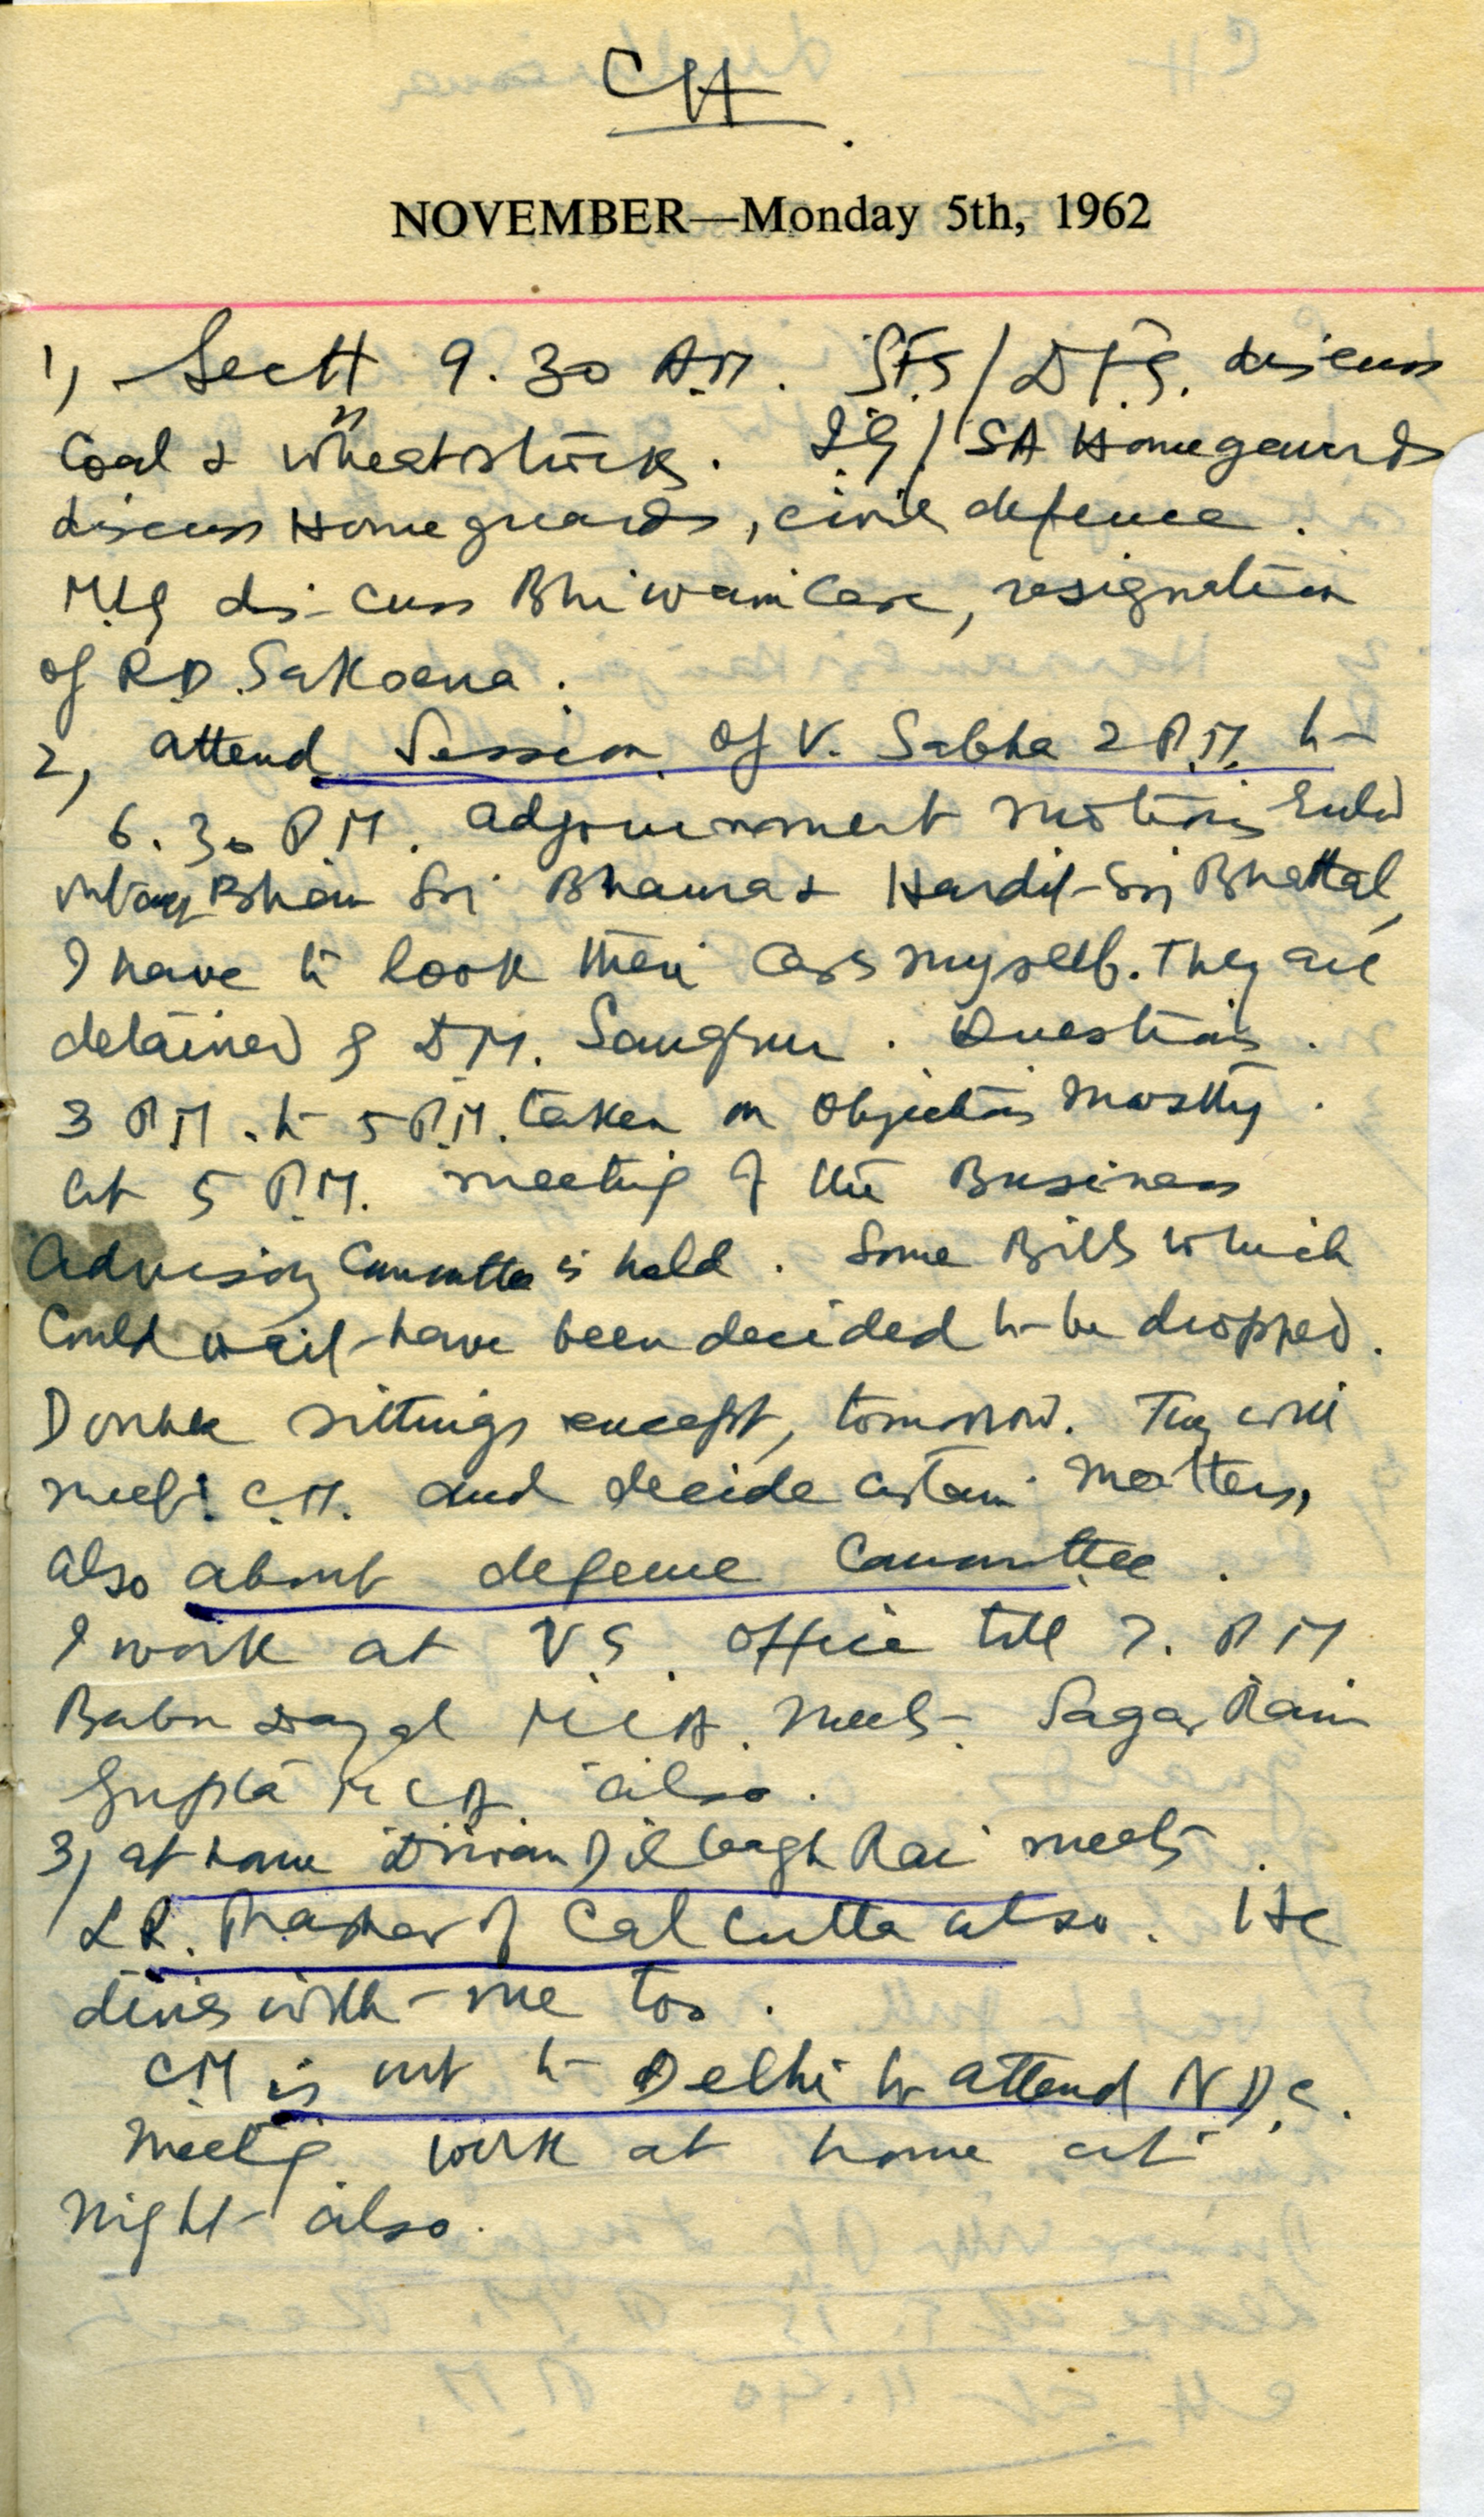 CH
NOVEMBER—Monday 5th, 1962
1, Sectt 9.30 A.M. SFS/DFS. discuss
Coal & Wheat stock. I.G/SA Homeguards
discuss Home guards, civil defence.
discuss Bhiwani Case, resignation
of R.D. Saksena.
2, attend Session of V. Sabha 2 P.M. to
6.30 P.M. adjournment motions
Bhan Singh Bhaura & Hardit Singh Bhattal,
I have to look their case myself. They are
detained by D.M. Sangrur. Questions.
3 P.M. to 5 P.M. taken on objections mostly.
At 5 P.M. meeting of the Business
Advisory Committee is held. Some Bills which
Could wait have been decided to be dropped.
Double sittings except, tomorrow. They will
meet C.M. and decide certain matters,
also about defence Committee.
I work at V.S. office till 7. P.M.
Babu Dayal M.L.A. meets. Sagar Ram
Gupta M.L.A. also.
3, at home Diwan Dilbagh Rai meets.
L.R. Thapar of Calcutta also. He
dines with me too.
CM is out to Delhi to attend N.D.C.
Meeting. work at home at
night also.